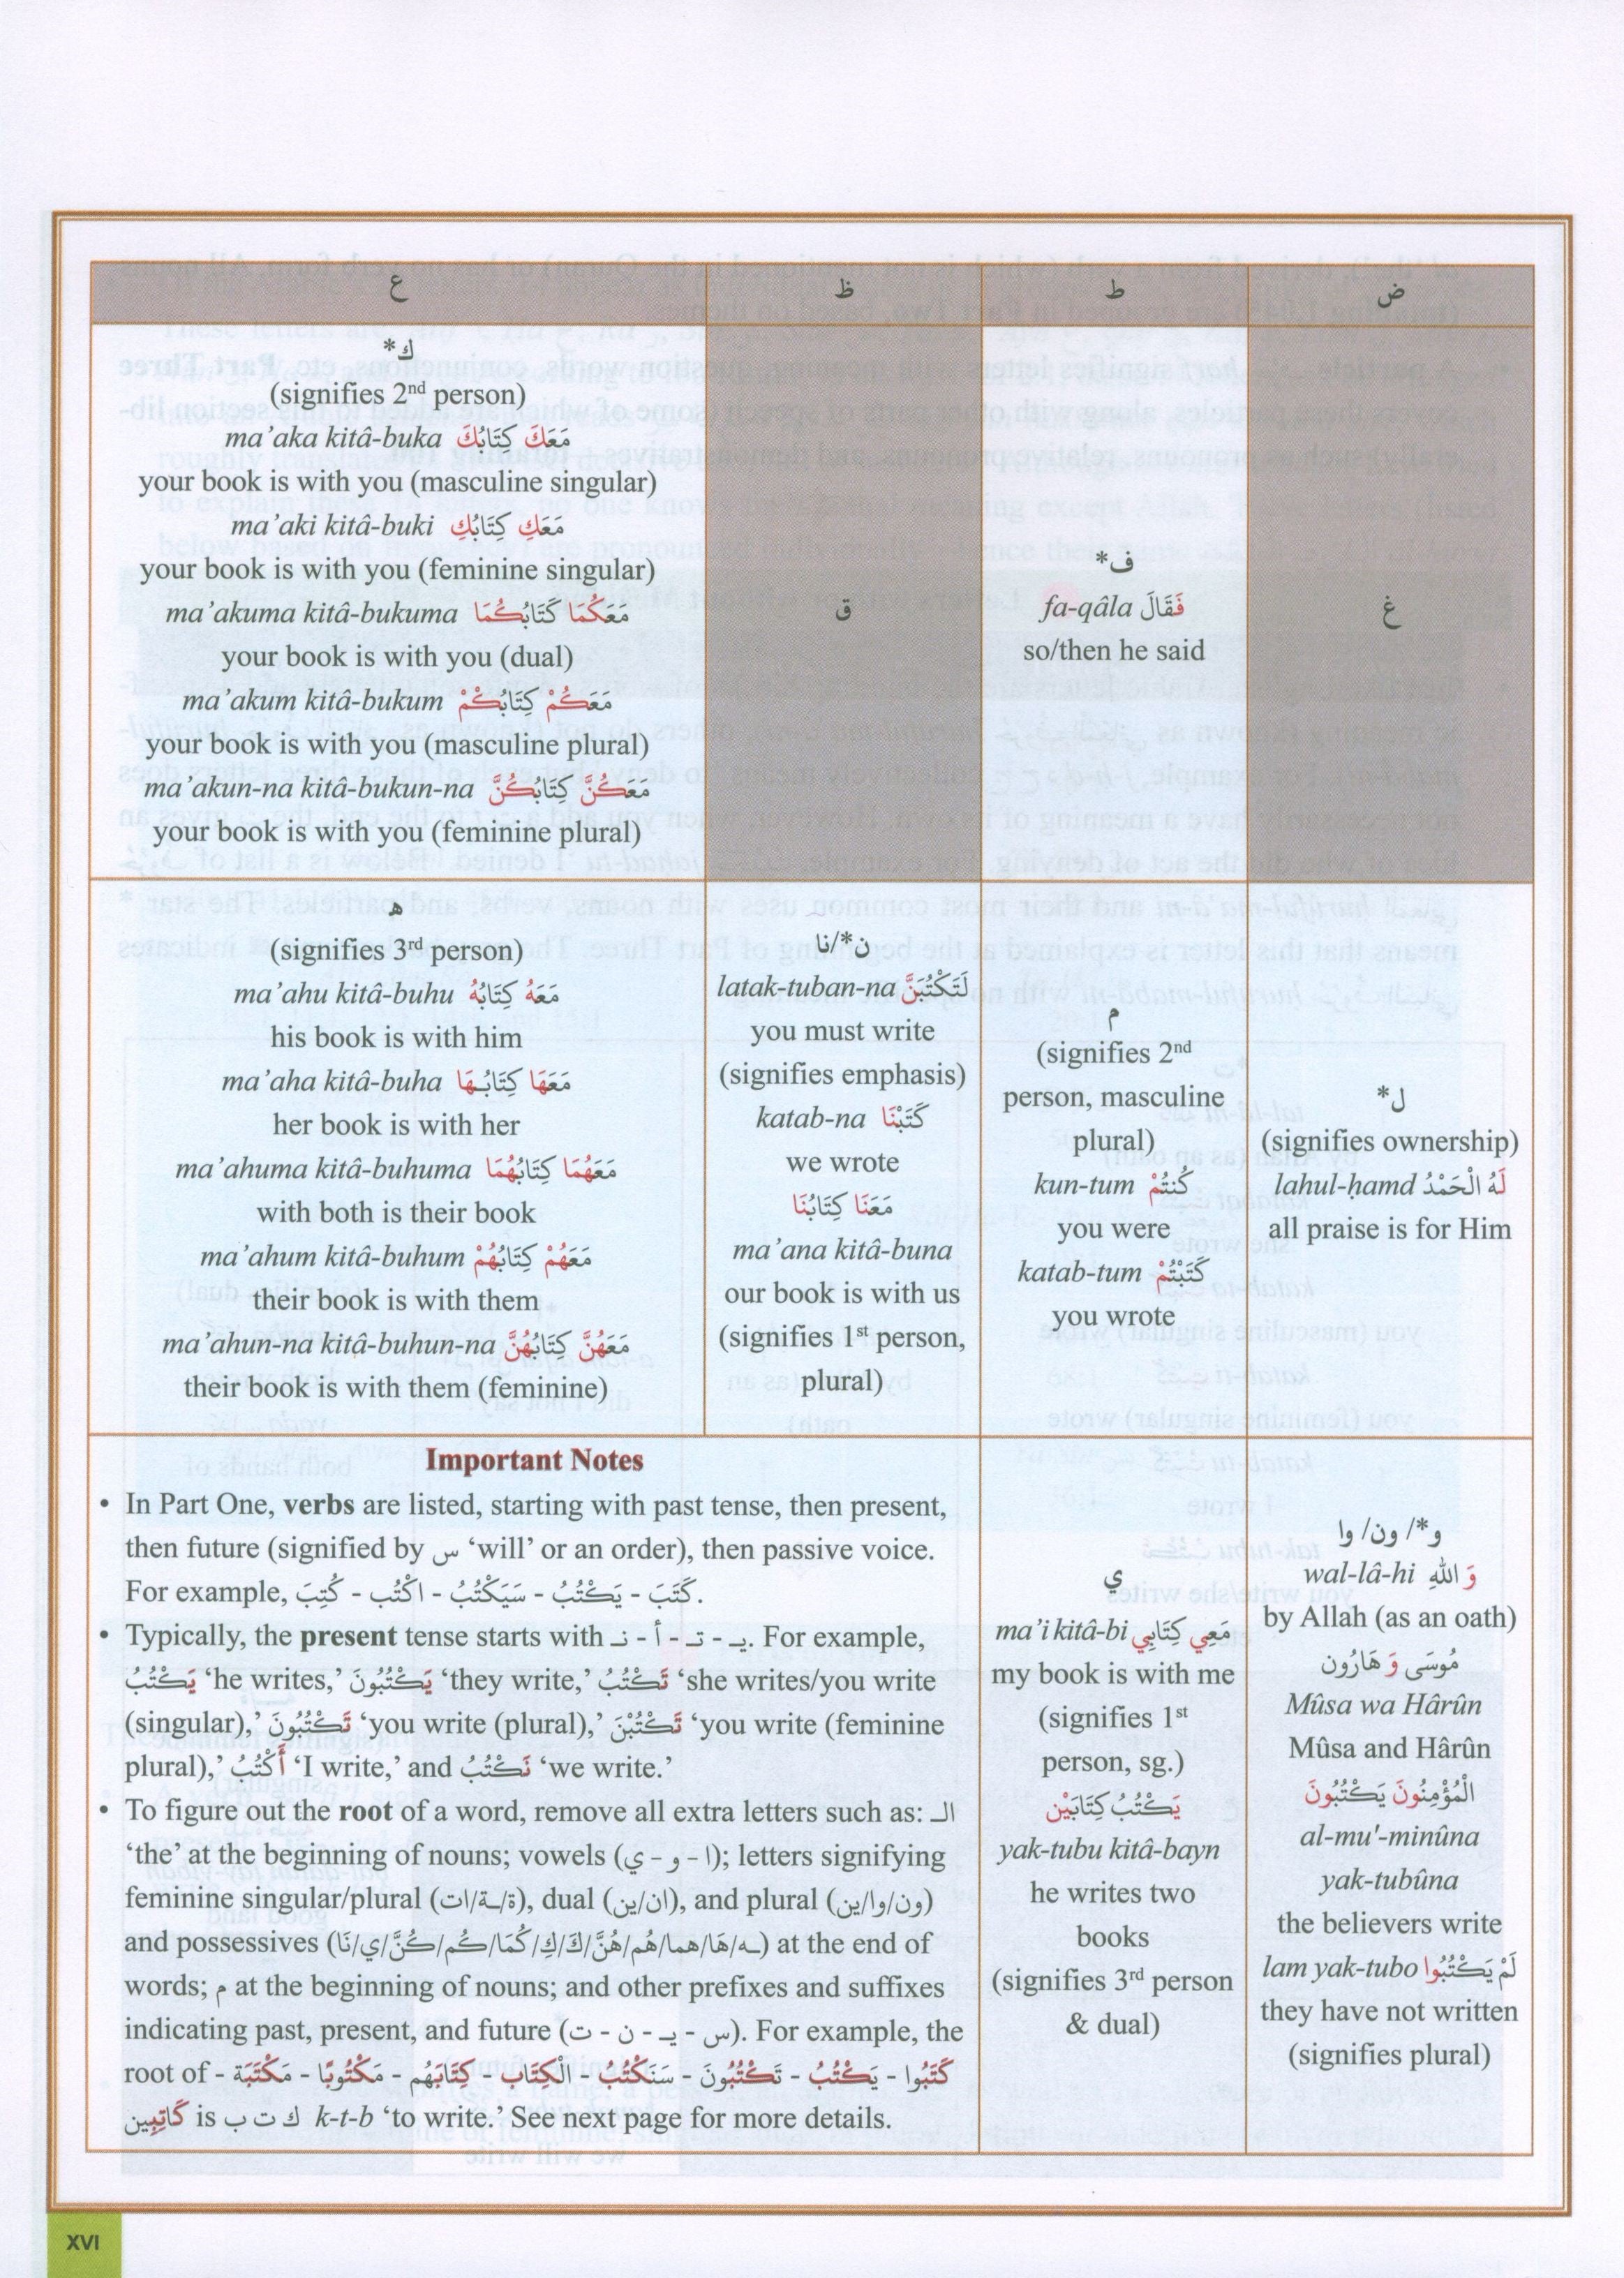 ض
ط
ظ
ع
غ
ف*
fa-qâla فَقَالَ
so/then he said
ق
ك*
(signifies 2nd person)
ma’aka kitâ-buka مَعَكَ كِتَابُكَ
your book is with you (masculine singular)
ma’aki kitâ-buki مَعَكِ كِتَابُكِ
your book is with you (feminine singular)
ma’akuma kitâ-bukuma مَعَكُمَا كَتَابُكُمَا
your book is with you (dual)
ma’akum kitâ-bukum مَعَكُمْ كِتَابُكُمْ
your book is with you (masculine plural)
ma’akun-na kitâ-bukun-na مَعَكُنَّ كِتَابُكُنَّ
your book is with you (feminine plural)
ل*
(signifies ownership)
lahul-ḥamd لَهُ الْحَمْدُ
all praise is for Him
م
(signifies 2nd
person, masculine
plural)
kun-tum كُنتُمْ
you were
katab-tum كَتَبْتُمْ
you wrote
ن*/نا
latak-tuban-na لَتَكْتُبَنَّ
you must write
(signifies emphasis)
katab-na كَتَبْنَا
we wrote
مَعَنَا كِتَابُنَا
ma’ana kitâ-buna
our book is with us
(signifies 1st person,
plural)
ه
(signifies 3rd person)
ma’ahu kitâ-buhu مَعَهُ كِتَابُهُ
his book is with him
ma’aha kitâ-buha مَعَهَا كِتَابُـهَا
her book is with her
ma’ahuma kitâ-buhuma مَعَهُمَا كِتَابُهُمَا
with both is their book
ma’ahum kitâ-buhum مَعَهُمْ كِتَابُهُمْ
their book is with them
ma’ahun-na kitâ-buhun-na مَعَهُنَّ كِتَابُهُنَّ
their book is with them (feminine)
و*/ ون/ وا
wal-lâ-hi وَ اللهِ
by Allah (as an oath)
مُوسَى وَ هَارُون
Mûsa wa Hârûn
Mûsa and Hârûn
الْمُؤْمِنُونَ يَكْتُبُونَ
al-mu'-minûna
yak-tubûna
the believers write
lam yak-tubo لَمْ يَكْتُبُوا
they have not written
(signifies plural)
ي
ma’i kitâ-bi مَعِي كِتَابِي
my book is with me
(signifies 1st
person, sg.)
يَكْتُبُ كِتَابَيْن
yak-tubu kitâ-bayn
he writes two
books
(signifies 3rd person
& dual)
Important Notes
• In Part One, verbs are listed, starting with past tense, then present,
then future (signified by س ‘will’ or an order), then passive voice.
For example, كَتَبَ - يَكْتُبُ - سَيَكْتُبُ - اكْتُب - كُتِبَ.
• Typically, the present tense starts with يـ - تـ - أ - نـ. For example,
يَكْتُبُ ‘he writes,’ يَكْتُبُونَ ‘they write,’ تَكْتُبُ ‘she writes/you write
(singular),’ تَكْتُبُونَ ‘you write (plural),’ تَكْتُبْنَ ‘you write (feminine
plural),’ أَكْتُبُ ‘I write,’ and نَكْتُبُ ‘we write.’
• To figure out the root of a word, remove all extra letters such as: الـ
‘the’ at the beginning of nouns; vowels (ا - و - ي); letters signifying
feminine singular/plural (ة/ـة/ات), dual (ان/ين), and plural (ون/وا/ين)
and possessives (ـه/هَا/هما/هُم/هُنَّ/كَ/كِ/كُمَا/كُم/كُنَّ/ي/نَا) at the end of
words; م at the beginning of nouns; and other prefixes and suffixes
indicating past, present, and future (س - يـ - ن - ت). For example, the
root of كَتَبُوا - يَكْتُبُ - تَكْتُبُونَ - سَنَكْتُبُ - الْكِتَاب - كِتَابَهُم - مَكْتُوبًا - مَكْتَبَة -
كَاتِبِين is ك ت ب k-t-b ‘to write.’ See next page for more details.
XVI